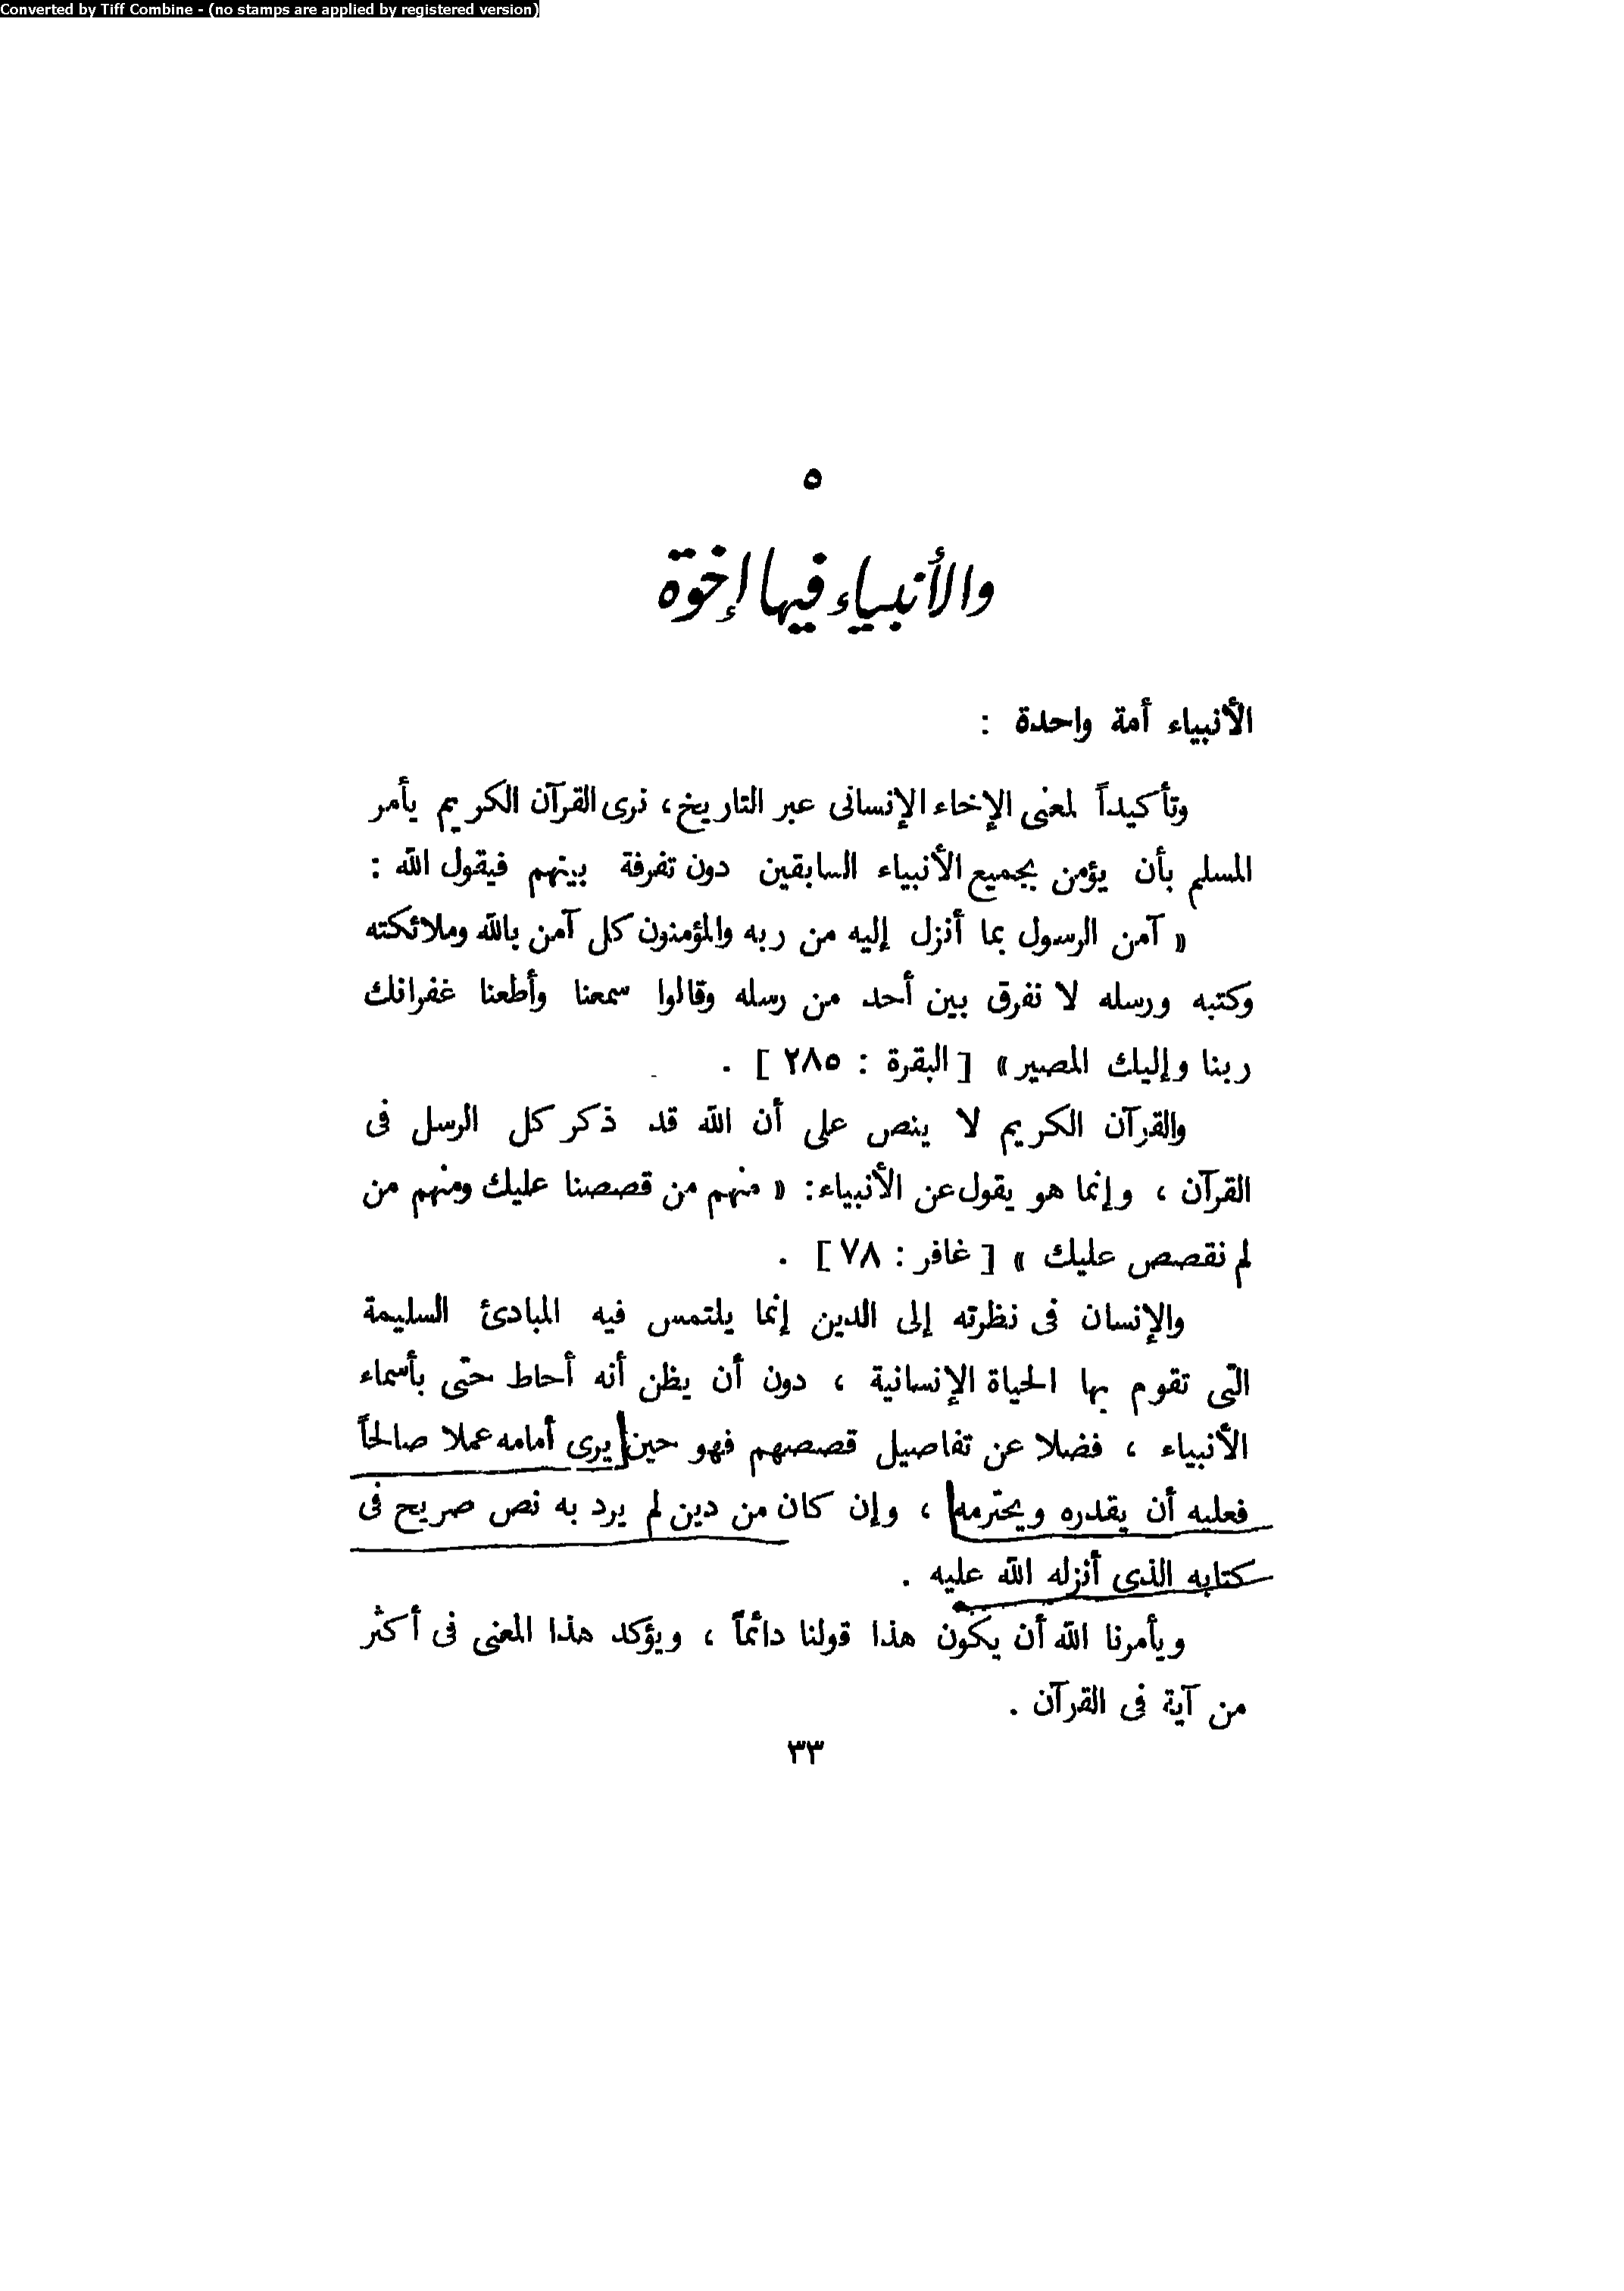 Converted by Tiff Combine - (no stamps are applied by registered version)
٥
والأنبياء فيها إخوة
الأنبياء أمة واحدة :
وتأكيداً لمعنى الإخاء الإنسانى عبر التاريخ، نرى القرآن الكريم يأمر
المسلم بأن يؤمن بجميع الأنبياء السابقين دون تفرقة بينهم فيقول الله :
« آمن الرسول بما أنزل إليه من ربه والمؤمنون كل آمن بالله وملائكته
وكتبه ورسله لا نفرق بين أحد من رسله وقالوا سمعنا وأطعنا غفرانك
ربنا وإليك المصير » [ البقرة : ٢٨٥ ] .
والقرآن الكريم لا ينص على أن الله قد ذكر كل الرسل فى
القرآن ، وإنما هو يقول عن الأنبياء: « منهم من قصصنا عليك ومنهم من
لم نقصص عليك » [ غافر : ٧٨ ] .
والإنسان فى نظرته إلى الدين إنما يلتمس فيه المبادئ السليمة
التى تقوم بها الحياة الإنسانية ، دون أن يظن أنه أحاط حتى بأسماء
الأنبياء ، فضلا عن تفاصيل قصصهم فهو حين يرى أمامه عملا صالحاً
فعليه أن يقدره ويحترمه ، وإن كان من دين لم يرد به نص صريح فى
كتابه الذى أنزله الله عليه .
ويأمرنا الله أن يكون هذا قولنا دائماً ، ويؤكد هذا المعنى فى أكثر
من آية فى القرآن .
٣٣